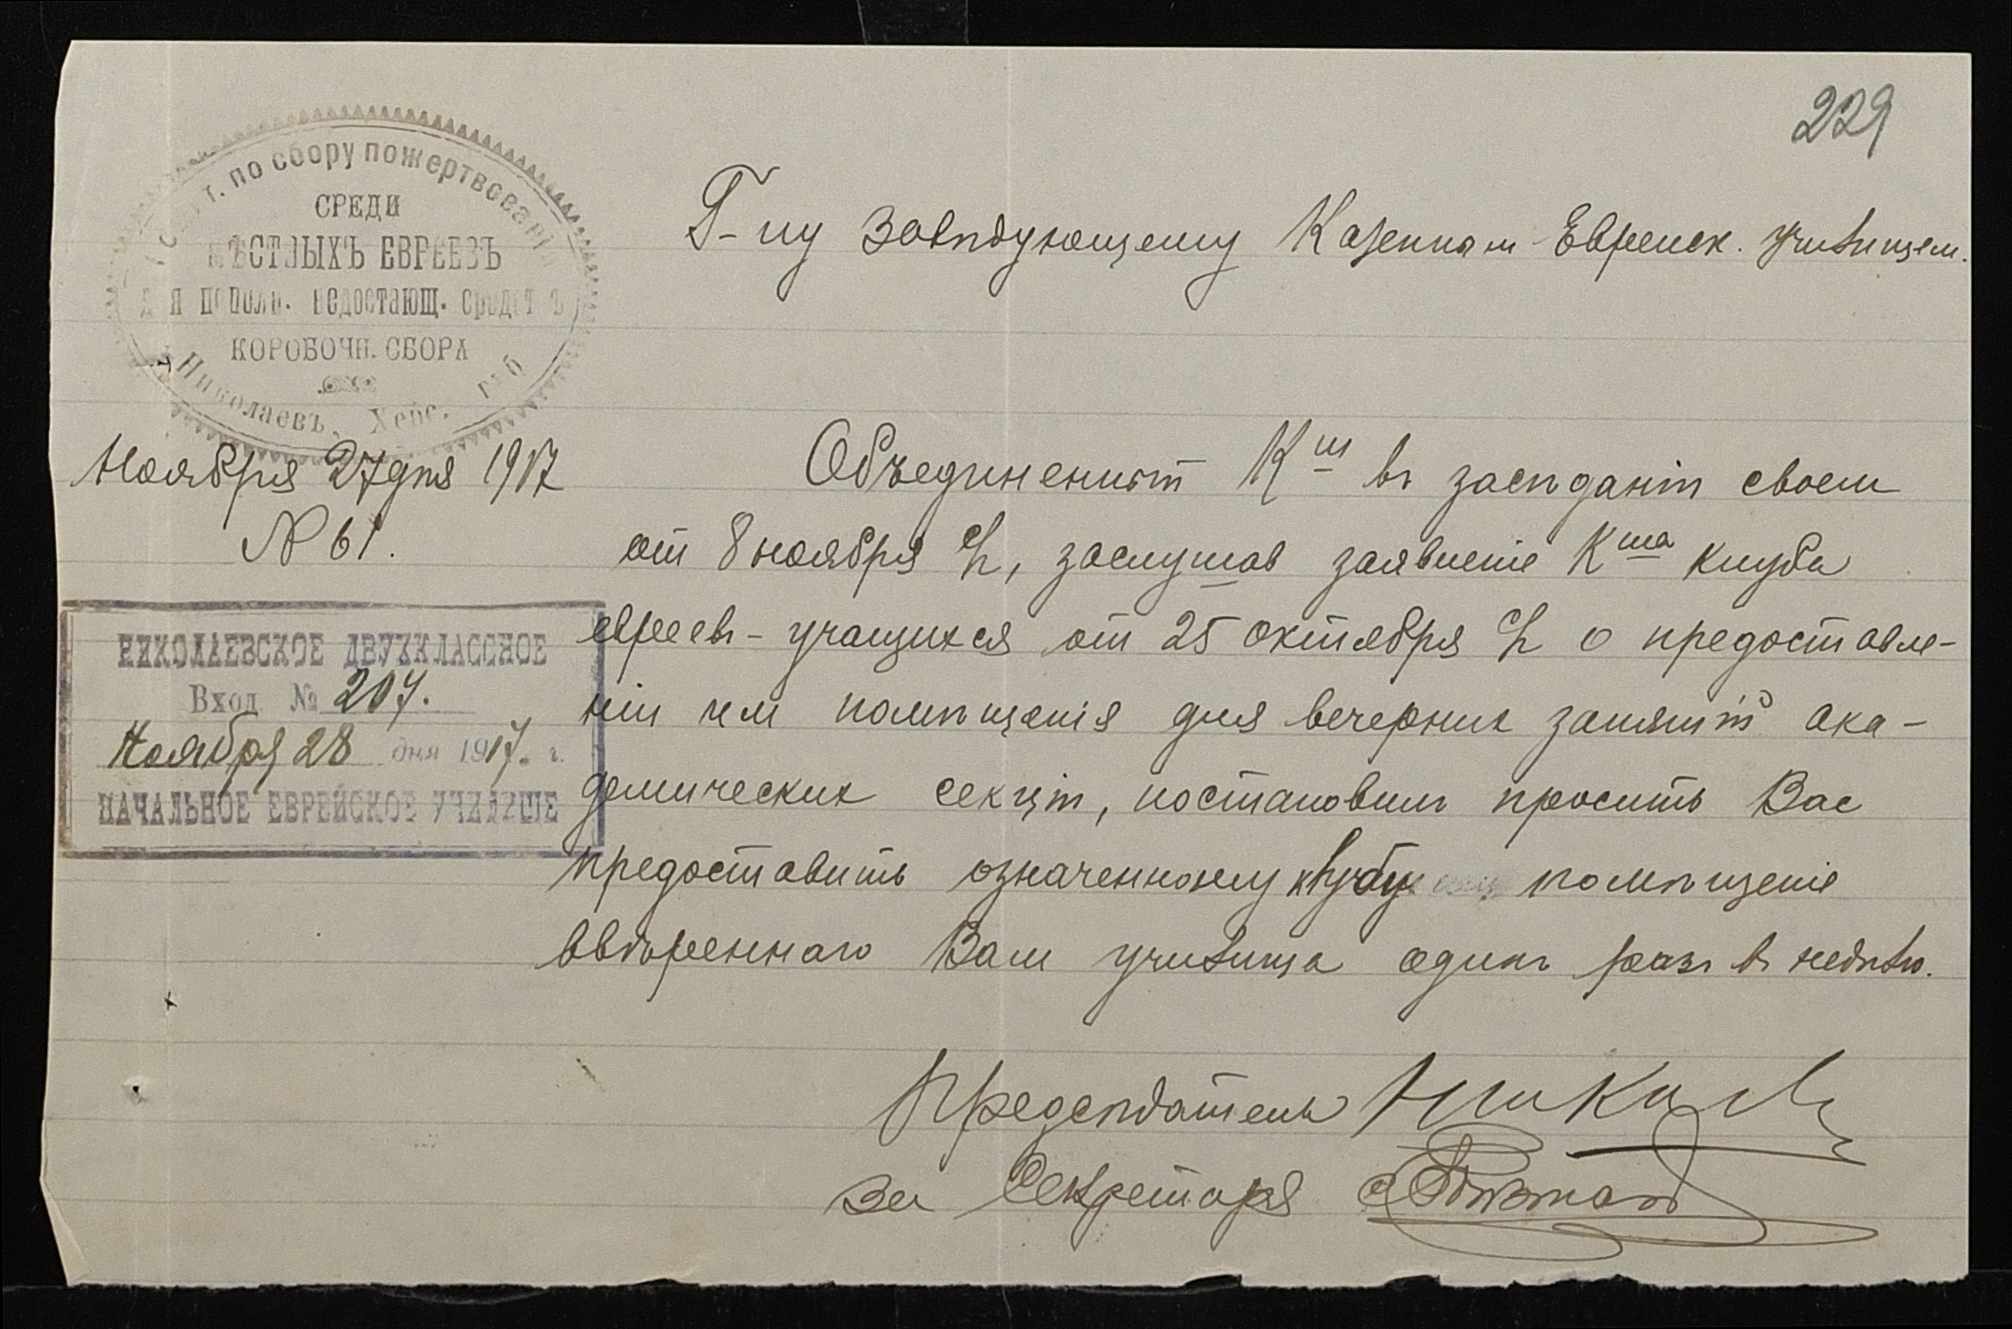 229
по сбору пожертвованій
СРЕДИ
МѢСТНЫХЪ ЕВРЕЕВЪ
для пополн. недостающ. средствъ
КОРОБОЧН. СБОРА
Николаевъ, Херс. губ
Г-ну Завѣдующему Казенным Еврейск. училищем.
Ноября 27 дня 1917
№ 61.
Объединенный К-т въ засѣданіи своем
от 8 ноября, заслушав заявленіе К-та клуба
евреевъ-учащихся от 25 октября о предоставле-
ніи им помѣщенія для вечерних занятій ака-
демических секцій, постановилъ просить Вас
предоставить означенному клубу помѣщеніе
ввѣреннаго Вам училища один разъ въ недѣлю.
НИКОЛАЕВСКОЕ ДВУХКЛАССНОЕ
Вход № 207.
Ноября 28 дня 1917. г.
НАЧАЛЬНОЕ ЕВРЕЙСКОЕ УЧИЛИЩЕ
Предсѣдатель
За Секретаря